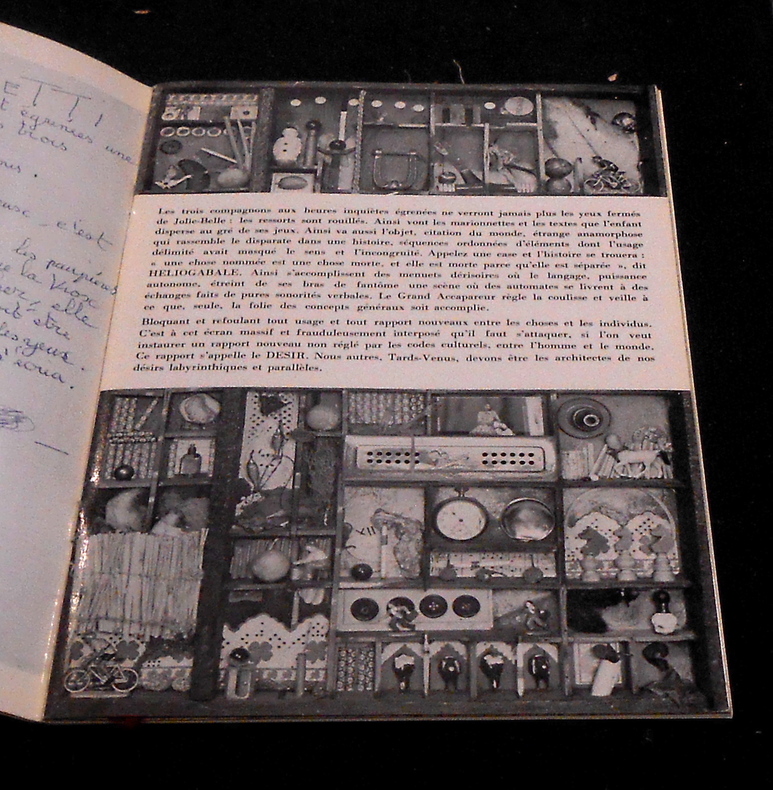 ETTI
égrenées une
trois
c'est
les paupières
la Vioc
elle
être
les yeux.
Les trois compagnons aux heures inquiètes égrenées ne verront jamais plus les yeux fermés
de Jolie-Belle : les ressorts sont rouillés. Ainsi vont les marionnettes et les textes que l'enfant
disperse au gré de ses jeux. Ainsi va aussi l'objet, citation du monde, étrange anamorphose
qui rassemble le disparate dans une histoire, séquences ordonnées d'éléments dont l'usage
délimité avait masqué le sens et l'incongruité. Appelez une case et l'histoire se trouera :
« une chose nommée est une chose morte, et elle est morte parce qu'elle est séparée », dit
HELIOGABALE. Ainsi s'accomplissent des menuets dérisoires où le langage, puissance
autonome, étreint de ses bras de fantôme une scène où des automates se livrent à des
échanges faits de pures sonorités verbales. Le Grand Accapareur règle la coulisse et veille à
ce que, seule, la folie des concepts généraux soit accomplie.
Bloquant et refoulant tout usage et tout rapport nouveaux entre les choses et les individus.
C'est à cet écran massif et frauduleusement interposé qu'il faut s'attaquer, si l'on veut
instaurer un rapport nouveau non réglé par les codes culturels, entre l'homme et le monde.
Ce rapport s'appelle le DESIR. Nous autres, Tards-Venus, devons être les architectes de nos
désirs labyrinthiques et parallèles.